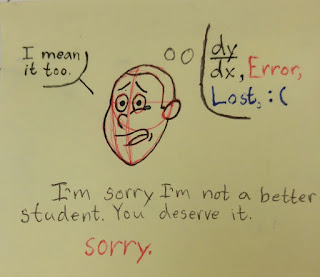 I mean
it too.
dy
dx, Error,
Lost, :(
I'm sorry I'm not a better
student. You deserve it.
sorry.